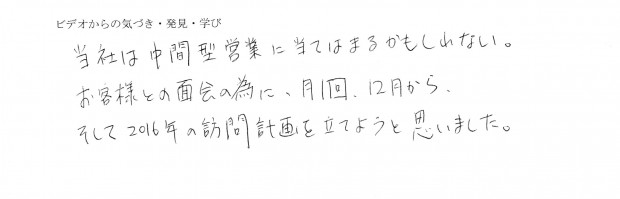 ビデオからの気づき・発見・学び
当社は中間型営業に当てはまるかもしれない。
お客様との面会の為に、月1回、12月から、
そして2016年の訪問計画を立てようと思いました。